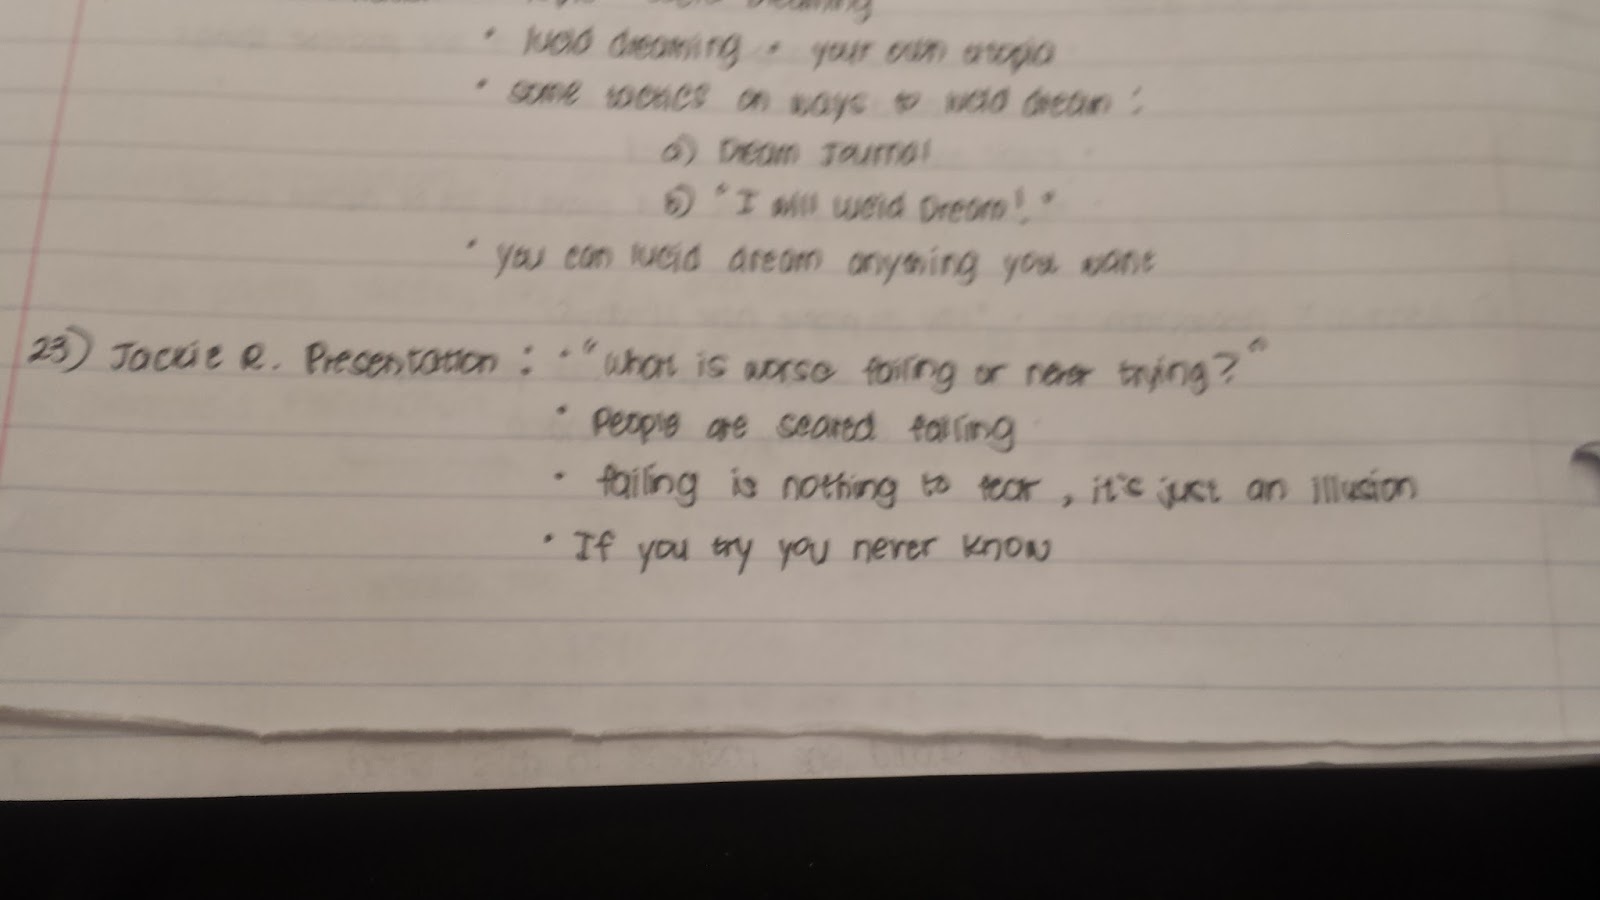 lucid dreaming
• lucid dreaming = your own utopia
• some tactics on ways to lucid dream :
a) Dream Journal
b) "I will Lucid Dream! "
• you can lucid dream anything you want
23) Jackie R. Presentation : • "What is worse failing or never trying? "
• People are scared failing
• failing is nothing to fear , it's just an illusion
• If you try you never know